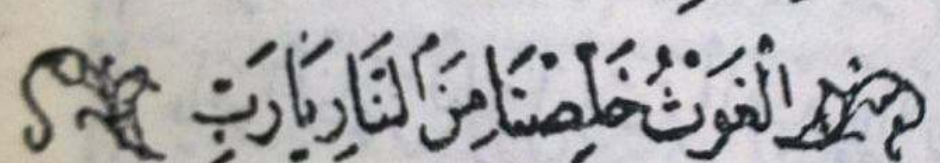 اَلْغَوْثُ خَلِّصْنَا مِنَ النَّارِ يَا رَبِّ